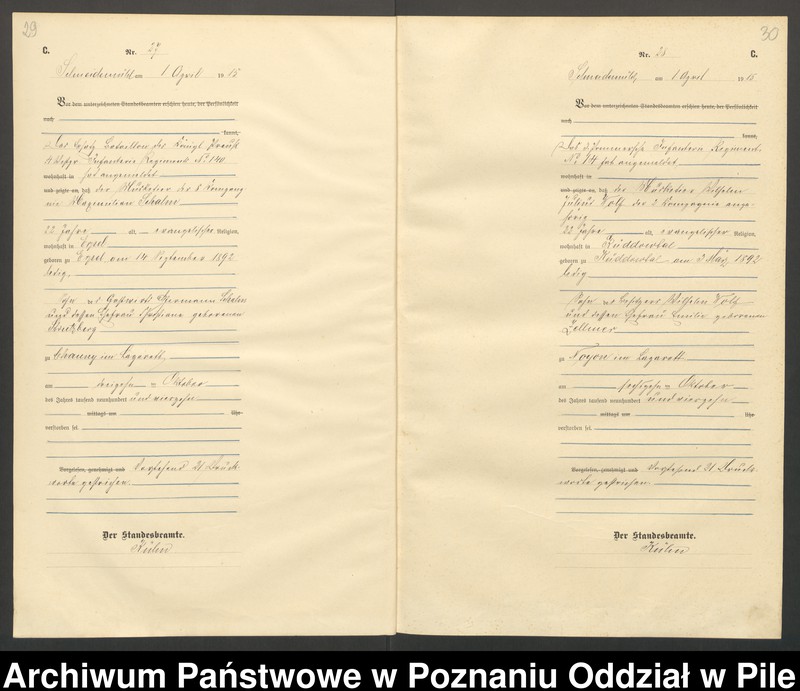 29
C. Nr. 27
Schneidemühl am 1 April 1915
Vor dem unterzeichneten Standesbeamten erschien heute, der Persönlichkeit
nach
kannt,
Das Ersatz Bataillon des Königl. Preuß.
4 Westpr. Infanterie Regiments No 140
wohnhaft in hat angemeldet
und zeigte an, daß der Musketier der 8 Kompagnie
Maximilian
22 Jahre alt, evangelischer Religion,
wohnhaft in
geboren zu am 14 September 1892
ledig,
Sohn des Gastwirts Hermann
und dessen Ehefrau geborenen
zu Chauny im Lazarett,
am dreizehn ten Oktober
des Jahres tausend neunhundert und vierzehn
mittags um Uhr
verstorben sei.
Vorgelesen, genehmigt und Vorstehend 21 Druck-
worte gestrichen
Der Standesbeamte.
30
Nr. 28 C.
Schneidemühl, am 1 April 1915
Vor dem unterzeichneten Standesbeamten erschien heute, der Persönlichkeit
nach
kannt,
Das 3 Pommersche Infanterie Regiment
No 14 hat angemeldet
wohnhaft in
und zeigte an, daß der Musketier Wilhelm
Julius der 2 Kompagnie ange-
hörig
22 Jahre alt, evangelischer Religion,
wohnhaft in Küddowtal
geboren zu Küddowtal am 3 März 1892
ledig
Sohn des Besitzers Wilhelm
und dessen Ehefrau Emilie geborenen
Zellmer
zu Noyon im Lazarett
am sechzehn ten Oktober
des Jahres tausend neunhundert und vierzehn
mittags um Uhr
verstorben sei.
Vorgelesen, genehmigt und Vorstehend 21 Druck-
worte gestrichen
Der Standesbeamte.
Archiwum Państwowe w Poznaniu Oddział w Pile